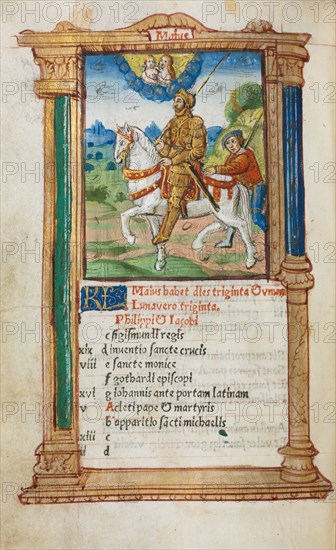 Maius.
KL Maius habet dies triginta & unum
Luna vero triginta.
Philippi & Iacobi
c sigismundi regis
xix d inventio sancte crucis
viii e sancte monice
f gothardi episcopi
xvi g iohannis ante portam latinam
v A cleti pape & martyris
b apparitio sacti michaelis
xiii c
ii d